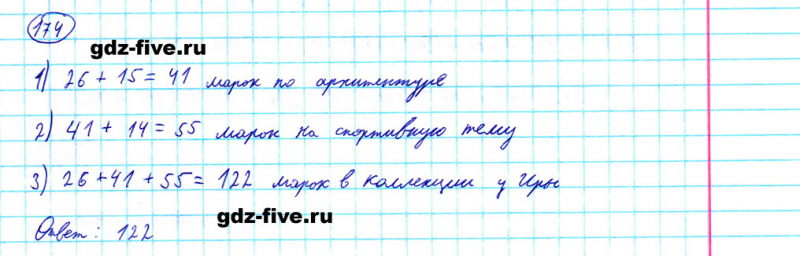 174
gdz-five.ru
1) 26 + 15 = 41 марок по архитектуре
2) 41 + 14 = 55 марок на спортивную тему
3) 26 + 41 + 55 = 122 марок в коллекции у Иры
gdz-five.ru
Ответ: 122